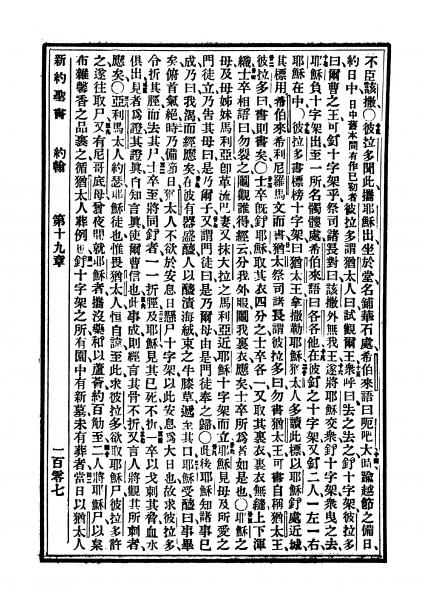 不臣該撒○彼拉多聞此攜耶穌出坐於堂名鋪華石處希伯來語曰厄吧大時踰越節之備日
約日中日中舊本間有作巳初者彼拉多謂猶太人曰試觀爾王衆呼曰去之去之釘十字架彼拉多
曰爾曹之王可釘十字架乎祭司諸長對曰該撒外無我王遂將耶穌交衆釘十字架衆曳之去
耶穌負十字架出至一所名髑髏處希伯來語曰各各他在彼釘之十字架又釘二人一左一右
耶穌在中彼拉多書標榜十字架曰猶太人王拿撒勒耶穌猶太人多讀此標以耶穌釘處近城
其標用希伯來希利尼羅馬文而書猶太祭司諸長謂彼拉多曰勿書猶太王可書自稱猶太王
彼拉多曰書則書矣○士卒旣釘耶穌取其衣四分之士卒各一又取其裏衣裏衣無縫上下渾
織士卒相語曰勿裂之鬮觀誰得經云分我外服鬮我裏衣應矣士卒所爲者如是也○耶穌之
母及母姊妹馬利亞卽革流巴妻又抹大拉之馬利亞近耶穌十字架而立耶穌見母及所愛之
門徒立乃告其母曰是乃爾子又謂門徒曰是乃爾母由是門徒奉之歸○此後耶穌知諸事已
成乃曰我渴而經應矣在彼有器盛醯人以醯漬海絨束之牛膝草遞至其口耶穌受醯曰事畢
矣俯首氣絕時乃備節日猶太人不欲於安息日懸尸十字架以此安息爲大日也故求彼拉多
令折其脛而去其尸士卒至將同釘者一一折脛及耶穌見其已死不折一卒以戈刺其脅血水
俱出見者爲證其證眞自知言眞使爾曹信也此事成則經言其骨不折又言人將觀其所刺者
應矣○亞利馬太人約瑟耶穌徒也惟畏猶太人恒自諱至此求彼拉多欲取耶穌尸彼拉多許
之遂往取尸又有尼哥底母曾夜就耶穌者攜沒藥和以蘆薈約百觔至二人將耶穌尸以枲
布雜馨香之品裹之循猶太人葬例也釘十字架之所有園中有新墓未有葬者當日以猶太人
新約聖書 約翰 第十九章 一百零七